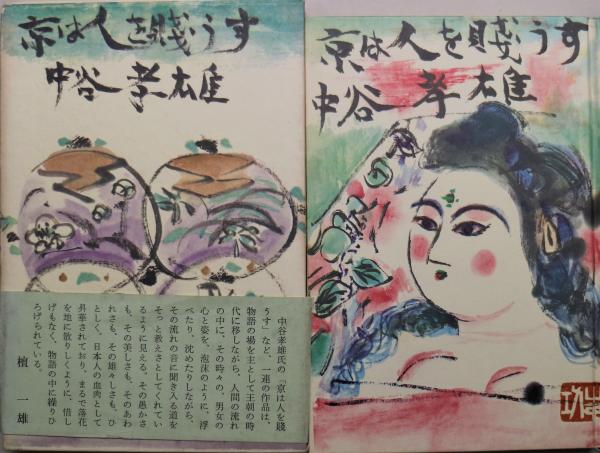 京は人を賤うす
中谷孝雄
中谷孝雄氏の「京は人を賤
うす」など、一連の作品は、
物語の場を主として王朝の時
代に移しながら、人間の流れ
の中に、その時々の、男女の
心と姿を、泡沫のように、浮
べたり、沈めたりしながら、
その流れの音に聞き入る道を
そっと教えさとしてくれてい
るように見える。その愚かさ
も、その美しさも、そのあわ
れさも、その雄々しさも、ひ
としく、日本人の血肉として
昇華されており、まるで落花
を地に散りしくように、惜し
げもなく、物語の中に繰りひ
ろげられている。
檀一雄
京は人を賤うす
中谷孝雄